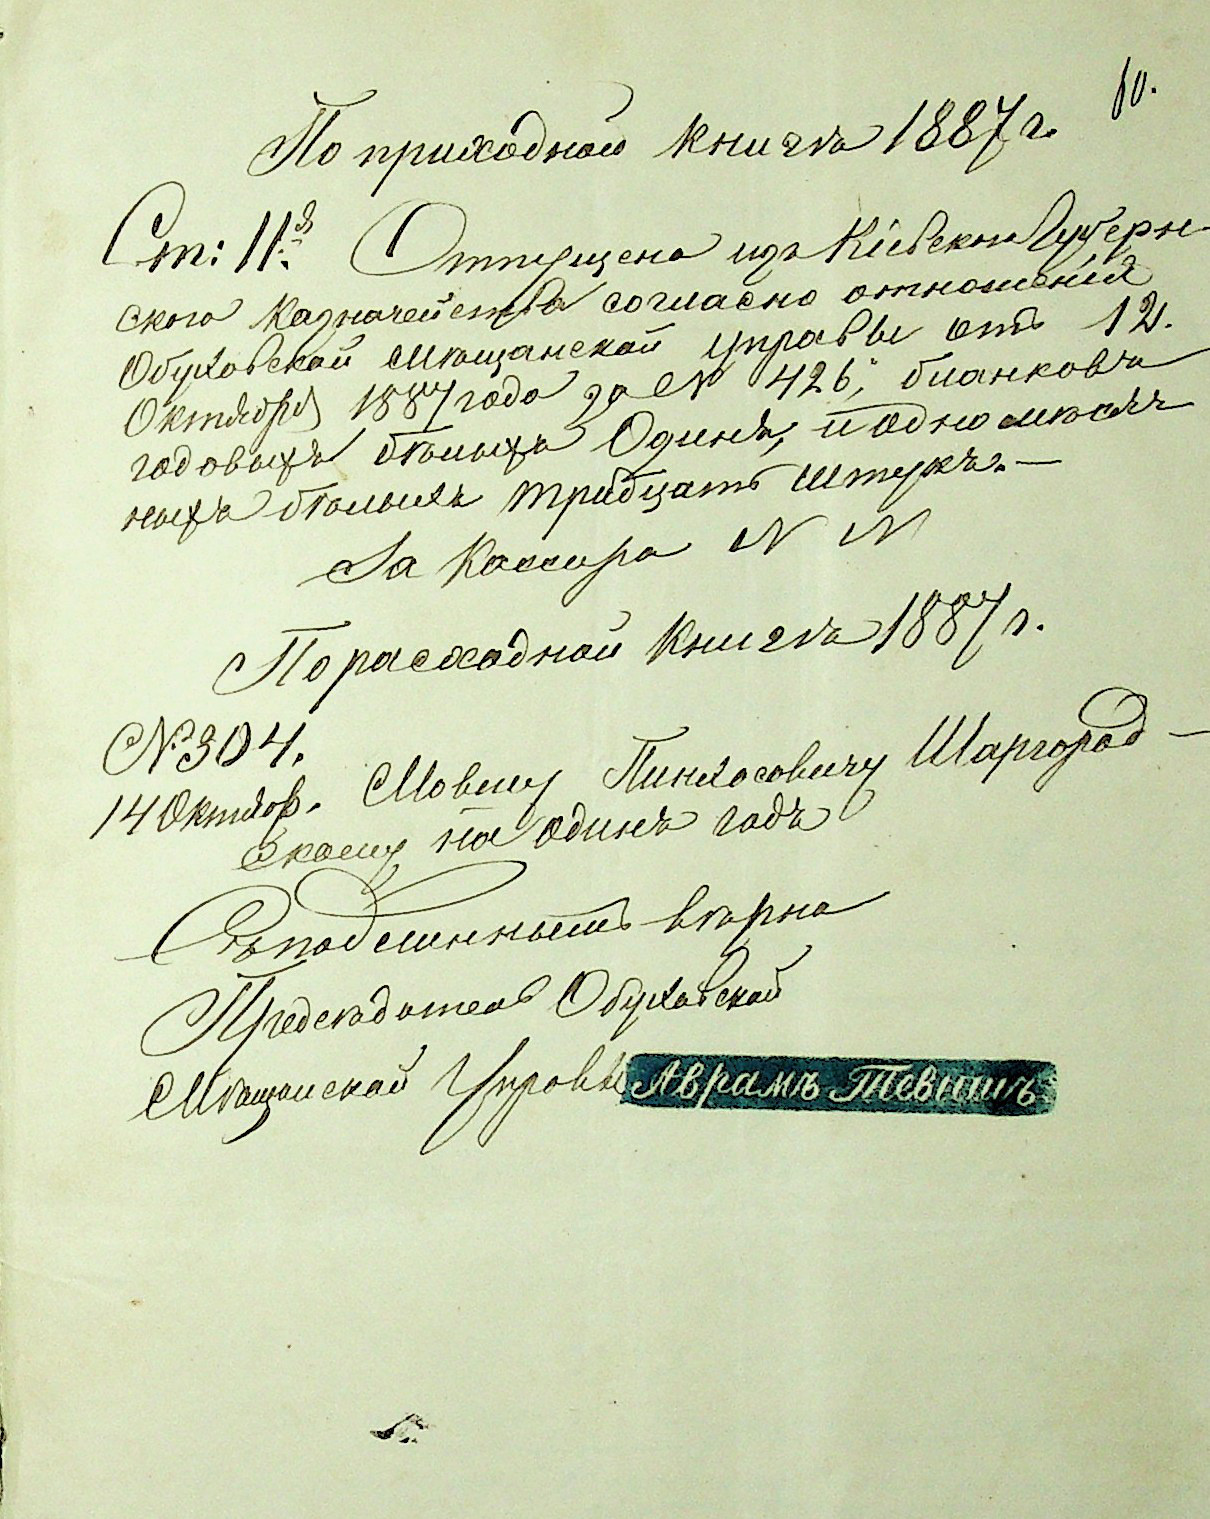 10.
По приходной книгѣ 1887 г.
Ст: 11.я Отпущено изъ Кіевскаго Губерн-
скаго Казначейства согласно отношенія
Обуховской Мѣщанской Управы отъ 12.
Октября 1887 года за № 426, бланковъ
годовыхъ бѣлыхъ Одинъ, и одномѣсяч
ныхъ бѣлыхъ тридцать штукъ. —
За Кассира N N
По расходной книгѣ 1887 г.
№ 304.
14 Октяб. Мовшу Пинхосовичу Шаргород-
скому на одинъ годъ
Съ подлиннымъ вѣрно
Предсѣдатель Обуховской
Мѣщанской Управы Аврамъ Тевишъ